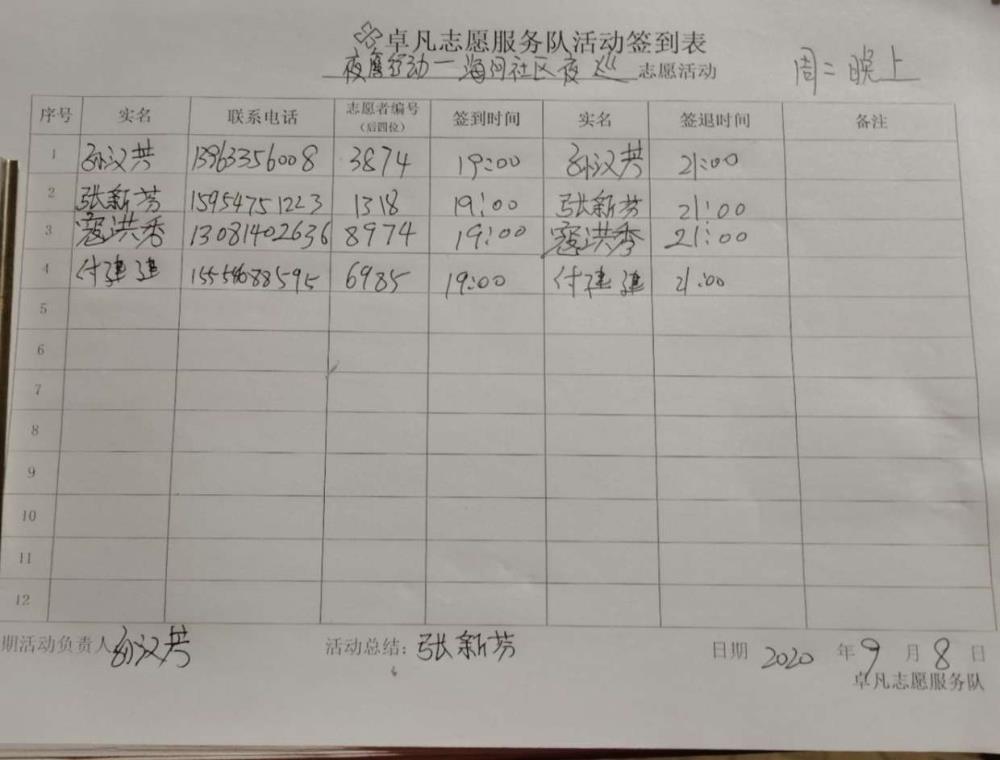 卓凡志愿服务队活动签到表
夜鹰行动一海河社区夜巡 志愿活动 周二晚上
序号 实名 联系电话 志愿者编号（后四位） 签到时间 实名 签退时间 备注
1 孙汉共 13963356008 3874 19:00 孙汉共 21:00
2 张新芳 15954751223 1318 19:00 张新芳 21:00
3 寇洪秀 13081402636 8974 19:00 寇洪秀 21:00
4 付建建 15558688595 6985 19:00 付建建 21:00
5
6
7
8
9
10
11
12
期活动负责人 孙汉共 活动总结：张新芳 日期 2020 年 9 月 8 日
卓凡志愿服务队